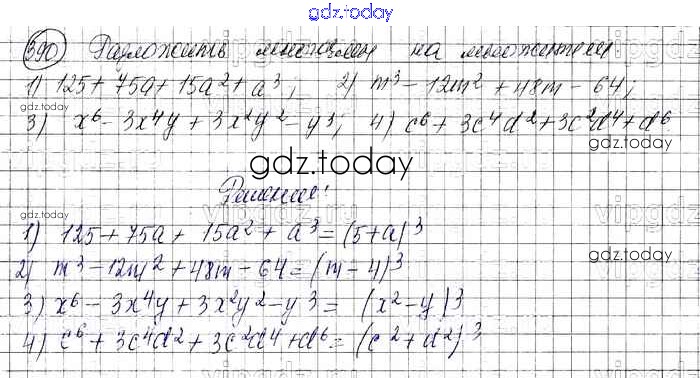 gdz.today
390 Разложить многочлен на множители
1) 125 + 75a + 15a² + a³; 2) m³ - 12m² + 48m - 64;
gdz.today
3) x⁶ - 3x⁴y + 3x²y² - y³; 4) c⁶ + 3c⁴d² + 3c²d⁴ + d⁶
gdz.today
gdz.today
Решение:
vipgdz.ru
1) 125 + 75a + 15a² + a³ = (5+a)³
2) m³ - 12m² + 48m - 64 = (m - 4)³
3) x⁶ - 3x⁴y + 3x²y² - y³ = (x² - y)³
4) c⁶ + 3c⁴d² + 3c²d⁴ + d⁶ = (c² + d²)³